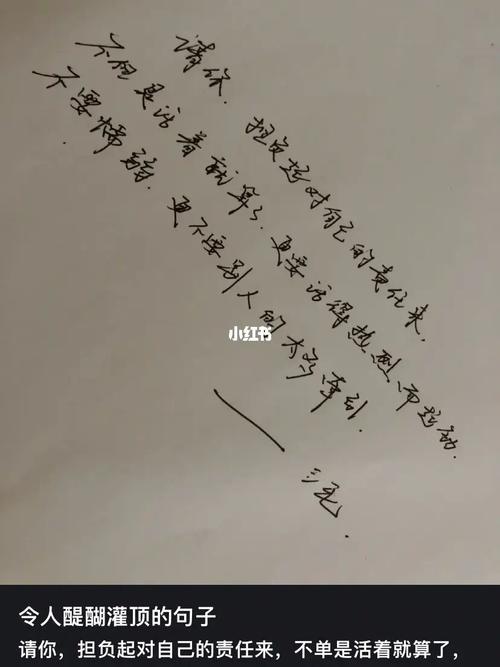 请你. 担负起对自己的责任来.
不但是活着就算了. 更要活得热烈而起劲.
不要懦弱. 更不要别人的太多牵引.
小红书
——三毛.
令人醍醐灌顶的句子
请你，担负起对自己的责任来，不单是活着就算了，